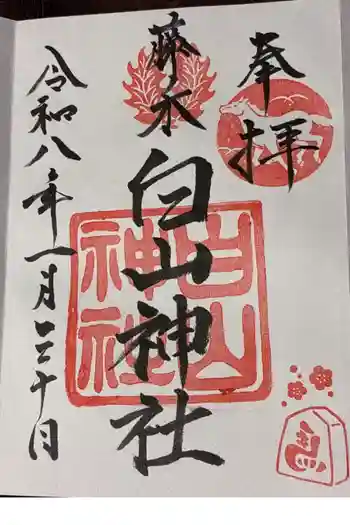 奉拝
藤木
白山神社
白山
神社
令和八年一月三十日
馬